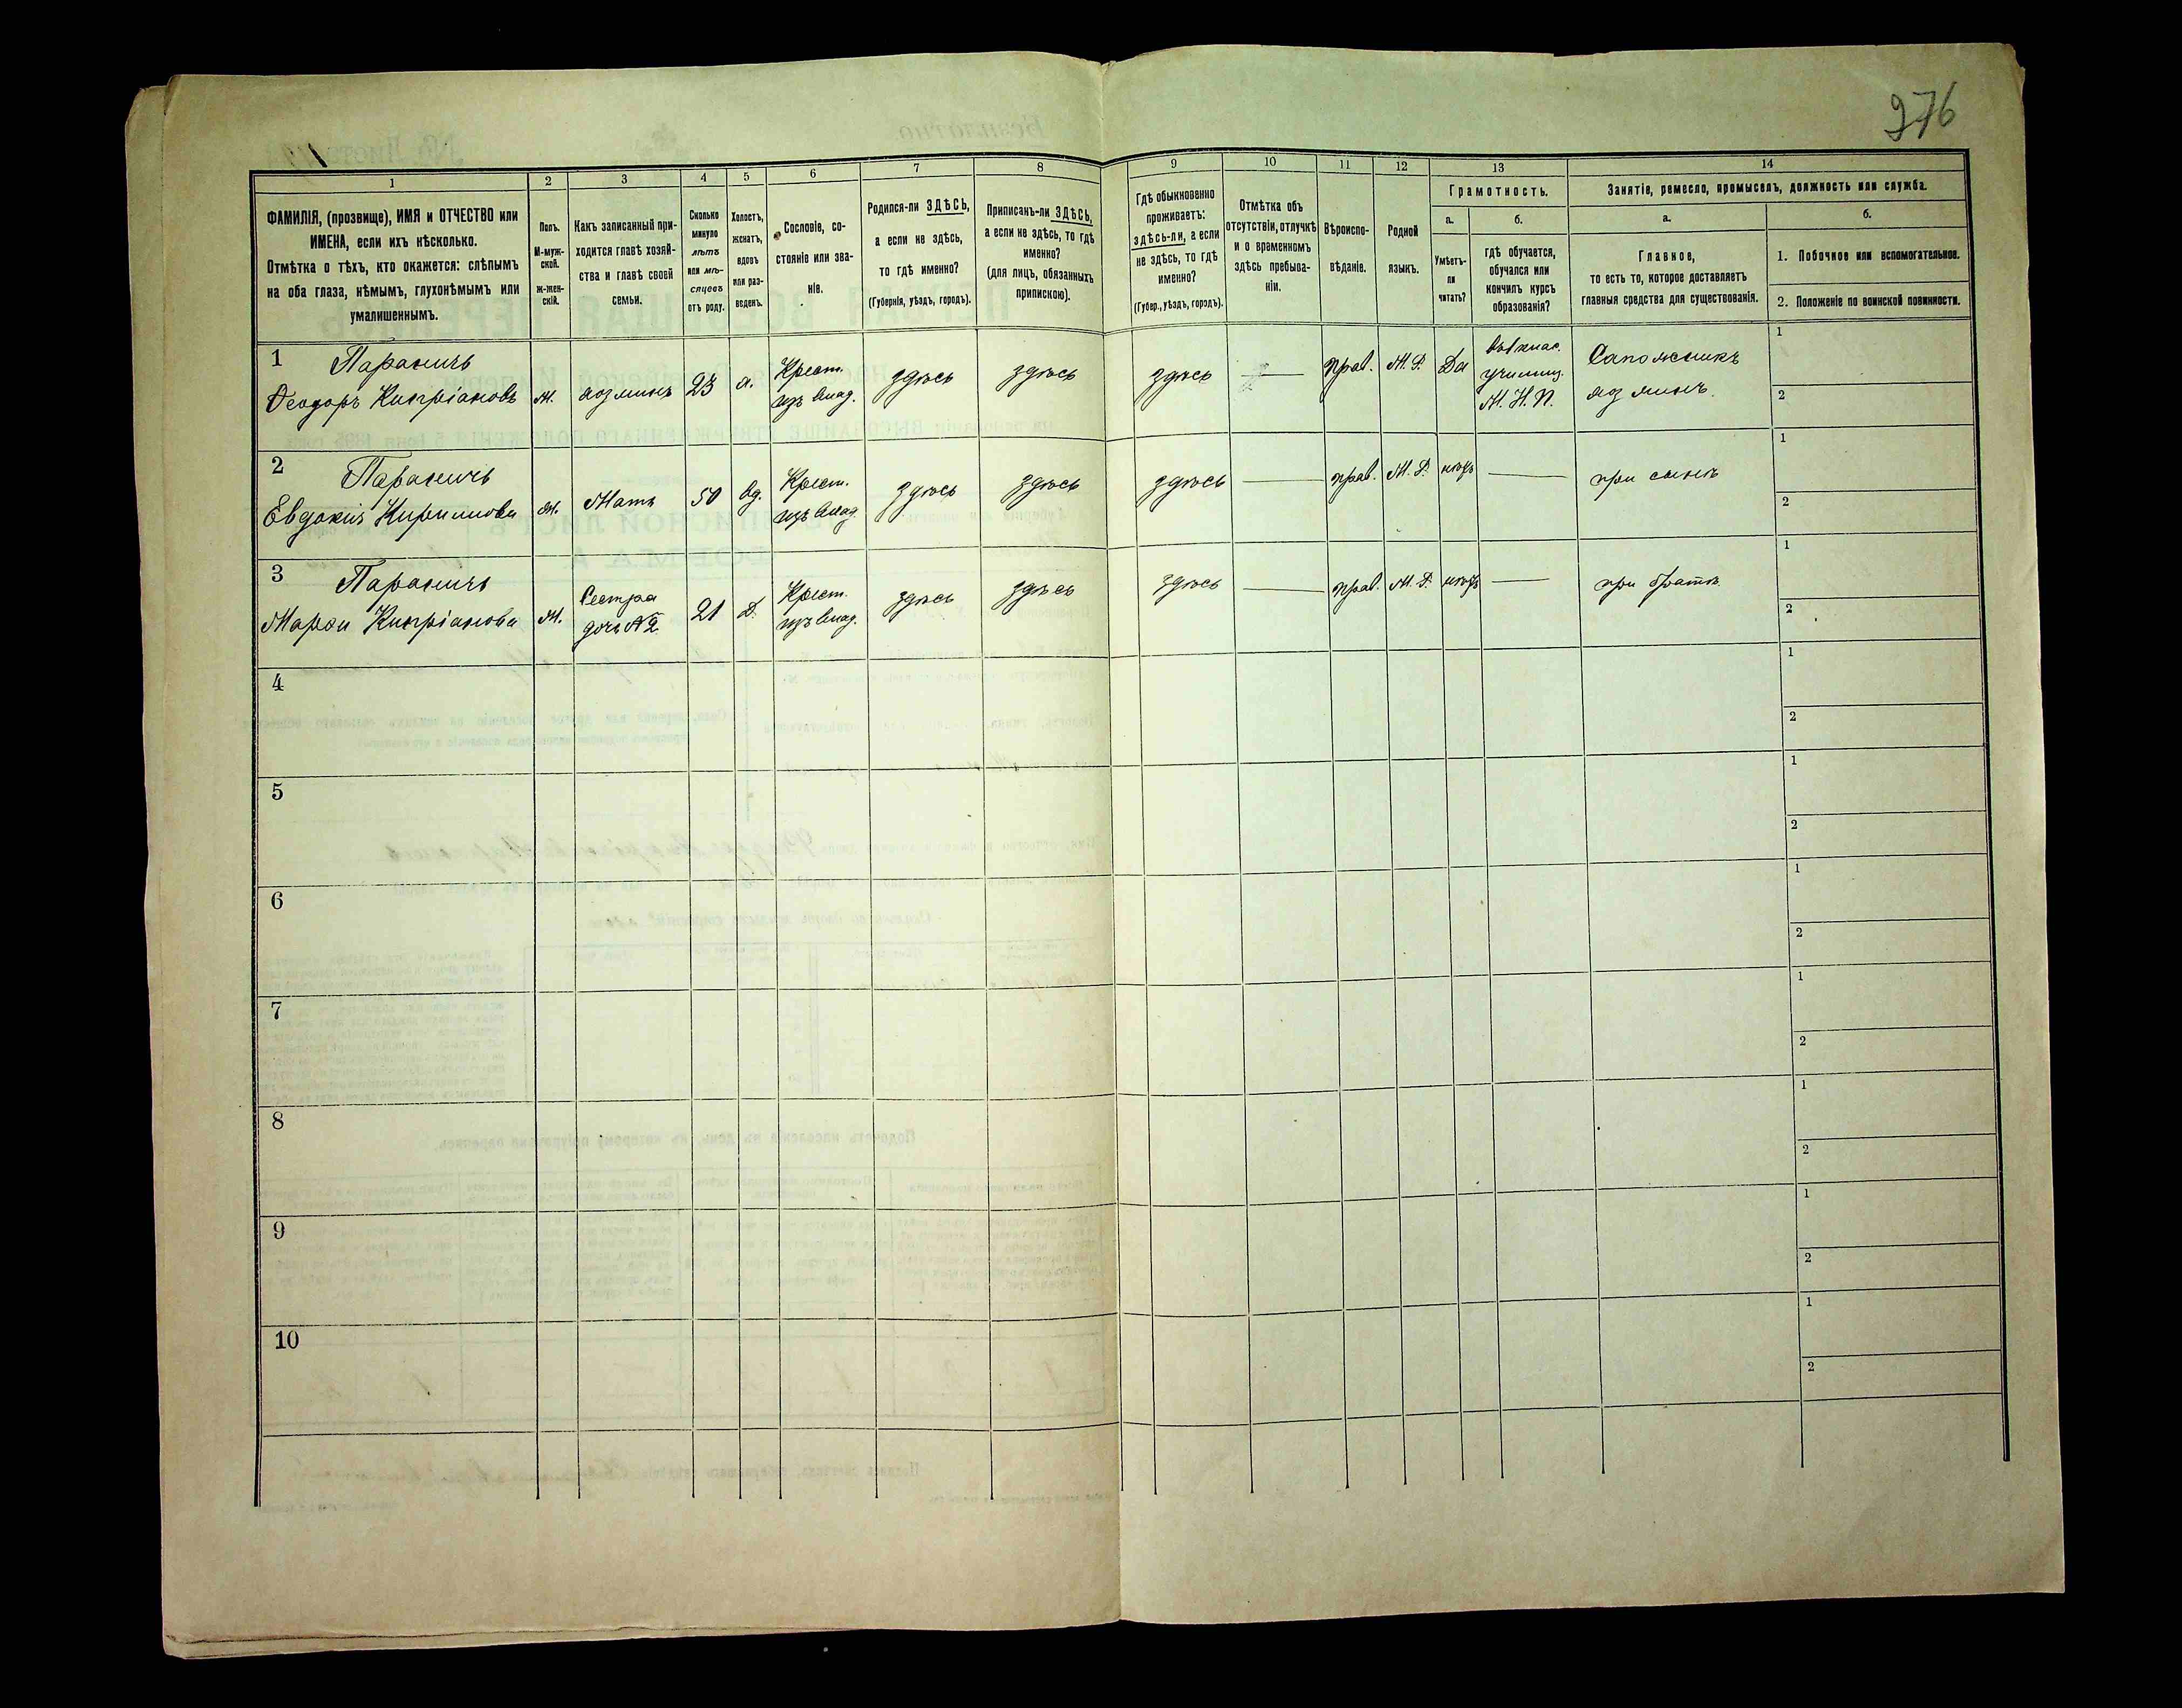 276
1
2
3
4
5
6
7
8
9
10
11
12
13
14
ФАМИЛІЯ, (прозвище), ИМЯ и ОТЧЕСТВО или
ИМЕНА, если ихъ нѣсколько.
Отмѣтка о тѣхъ, кто окажется: слѣпымъ
на оба глаза, нѣмымъ, глухонѣмымъ или
умалишеннымъ.
Полъ.
М-муж-
ской.
ж-жен-
скій.
Какъ записанный при-
ходится главѣ хозяй-
ства и главѣ своей
семьи.
Сколько
минуло
лѣтъ
или мѣ-
сяцевъ
отъ роду.
Холостъ,
женатъ,
вдовъ
или раз-
веденъ.
Сословіе, со-
стояніе или зва-
ніе.
Родился-ли ЗДѢСЬ,
а если не здѣсь,
то гдѣ именно?
(Губернія, уѣздъ, городъ).
Приписанъ-ли ЗДѢСЬ,
а если не здѣсь, то гдѣ
именно?
(для лицъ, обязанныхъ
припискою).
Гдѣ обыкновенно
проживаетъ:
здѣсь-ли, а если
не здѣсь, то гдѣ
именно?
(Губер., уѣздъ, городъ).
Отмѣтка объ
отсутствіи, отлучкѣ
и о временномъ
здѣсь пребыва-
ніи.
Вѣроиспо-
вѣданіе.
Родной
языкъ.
Грамотность.
а.
Умѣетъ-
ли
читать?
б.
гдѣ обучается,
обучался или
кончилъ курсъ
образованія?
Занятіе, ремесло, промыселъ, должность или служба.
а.
Главное,
то есть то, которое доставляетъ
главныя средства для существованія.
б.
1. Побочное или вспомогательное.
2. Положеніе по воинской повинности.
1
Параничъ
Ѳеодоръ Кипріановъ
м.
хозяинъ
23
х.
Крест.
изъ влад.
здѣсь
здѣсь
здѣсь
—
прав.
М. Р.
Да
училищ.
М. Н. П.
Сапожникъ
хозяинъ.
1
2
2
Параничъ
Евдокія Кирилова
ж.
Мать
50
вд.
Крест.
изъ влад.
здѣсь
здѣсь
здѣсь
—
прав.
М. Р.
нѣтъ
—
при сынѣ
1
2
3
Параничъ
Марѳа Кипріанова
ж.
Сестра
дочь №2.
21
д.
Крест.
изъ влад.
здѣсь
здѣсь
здѣсь
—
прав.
М. Р.
нѣтъ
—
при братѣ.
1
2
4
1
2
5
1
2
6
1
2
7
1
2
8
1
2
9
1
2
10
1
2